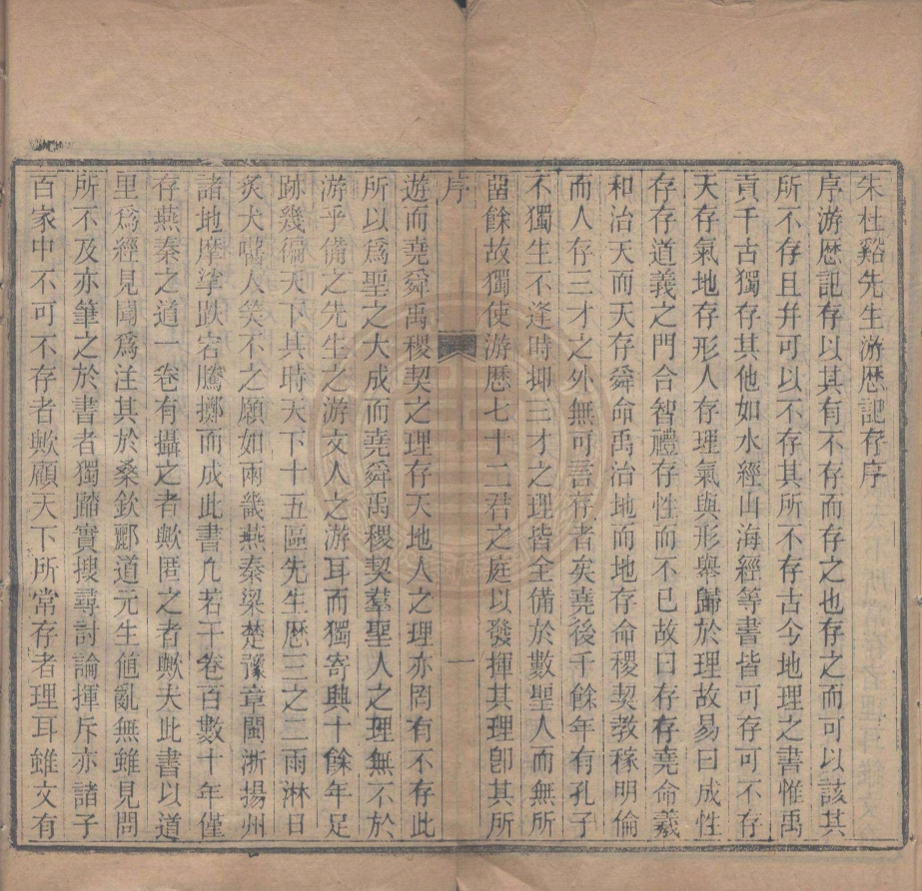 朱杜谿先生游歷記存序
序游歷記存以其有不存而存之也存之而可以該其
所不存且并可以不存其所不存古今地理之書惟禹
貢千古獨存其他如水經山海經等書皆可存可不存
天存氣地存形人存理氣與形舉歸於理故易曰成性
存存道義之門合智禮存性而不已故曰存存堯命羲
和治天而天存舜命禹治地而地存命稷契教稼明倫
而人存三才之外無可言存者矣堯後千餘年有孔子
不獨生不逢時抑三才之理皆全備於數聖人而無所
畱餘故獨使游歷七十二君之庭以發揮其理卽其所
序
一
遊而堯舜禹稷契之理存天地人之理亦罔有不存此
所以爲聖之大成而堯舜禹稷契羣聖人之理無不於
游乎備之先生之游文人之游耳而獨寄興十餘年足
跡幾徧天下其時天下十五區先生歷三之二雨淋日
炙犬嚙人笑不之願如兩畿燕秦梁楚豫章閩浙揚州
諸地摩挲跌宕騰擲而成此書凢若干卷百數十年僅
存燕秦之道一卷有攝之者歟匿之者歟夫此書以道
里爲經見聞爲注其於桑欽酈道元生値亂無雖見問
所不及亦筆之於書者獨踏實搜尋討論揮斥亦諸子
百家中不可不存者歟顧天下所常存者理耳雖文有